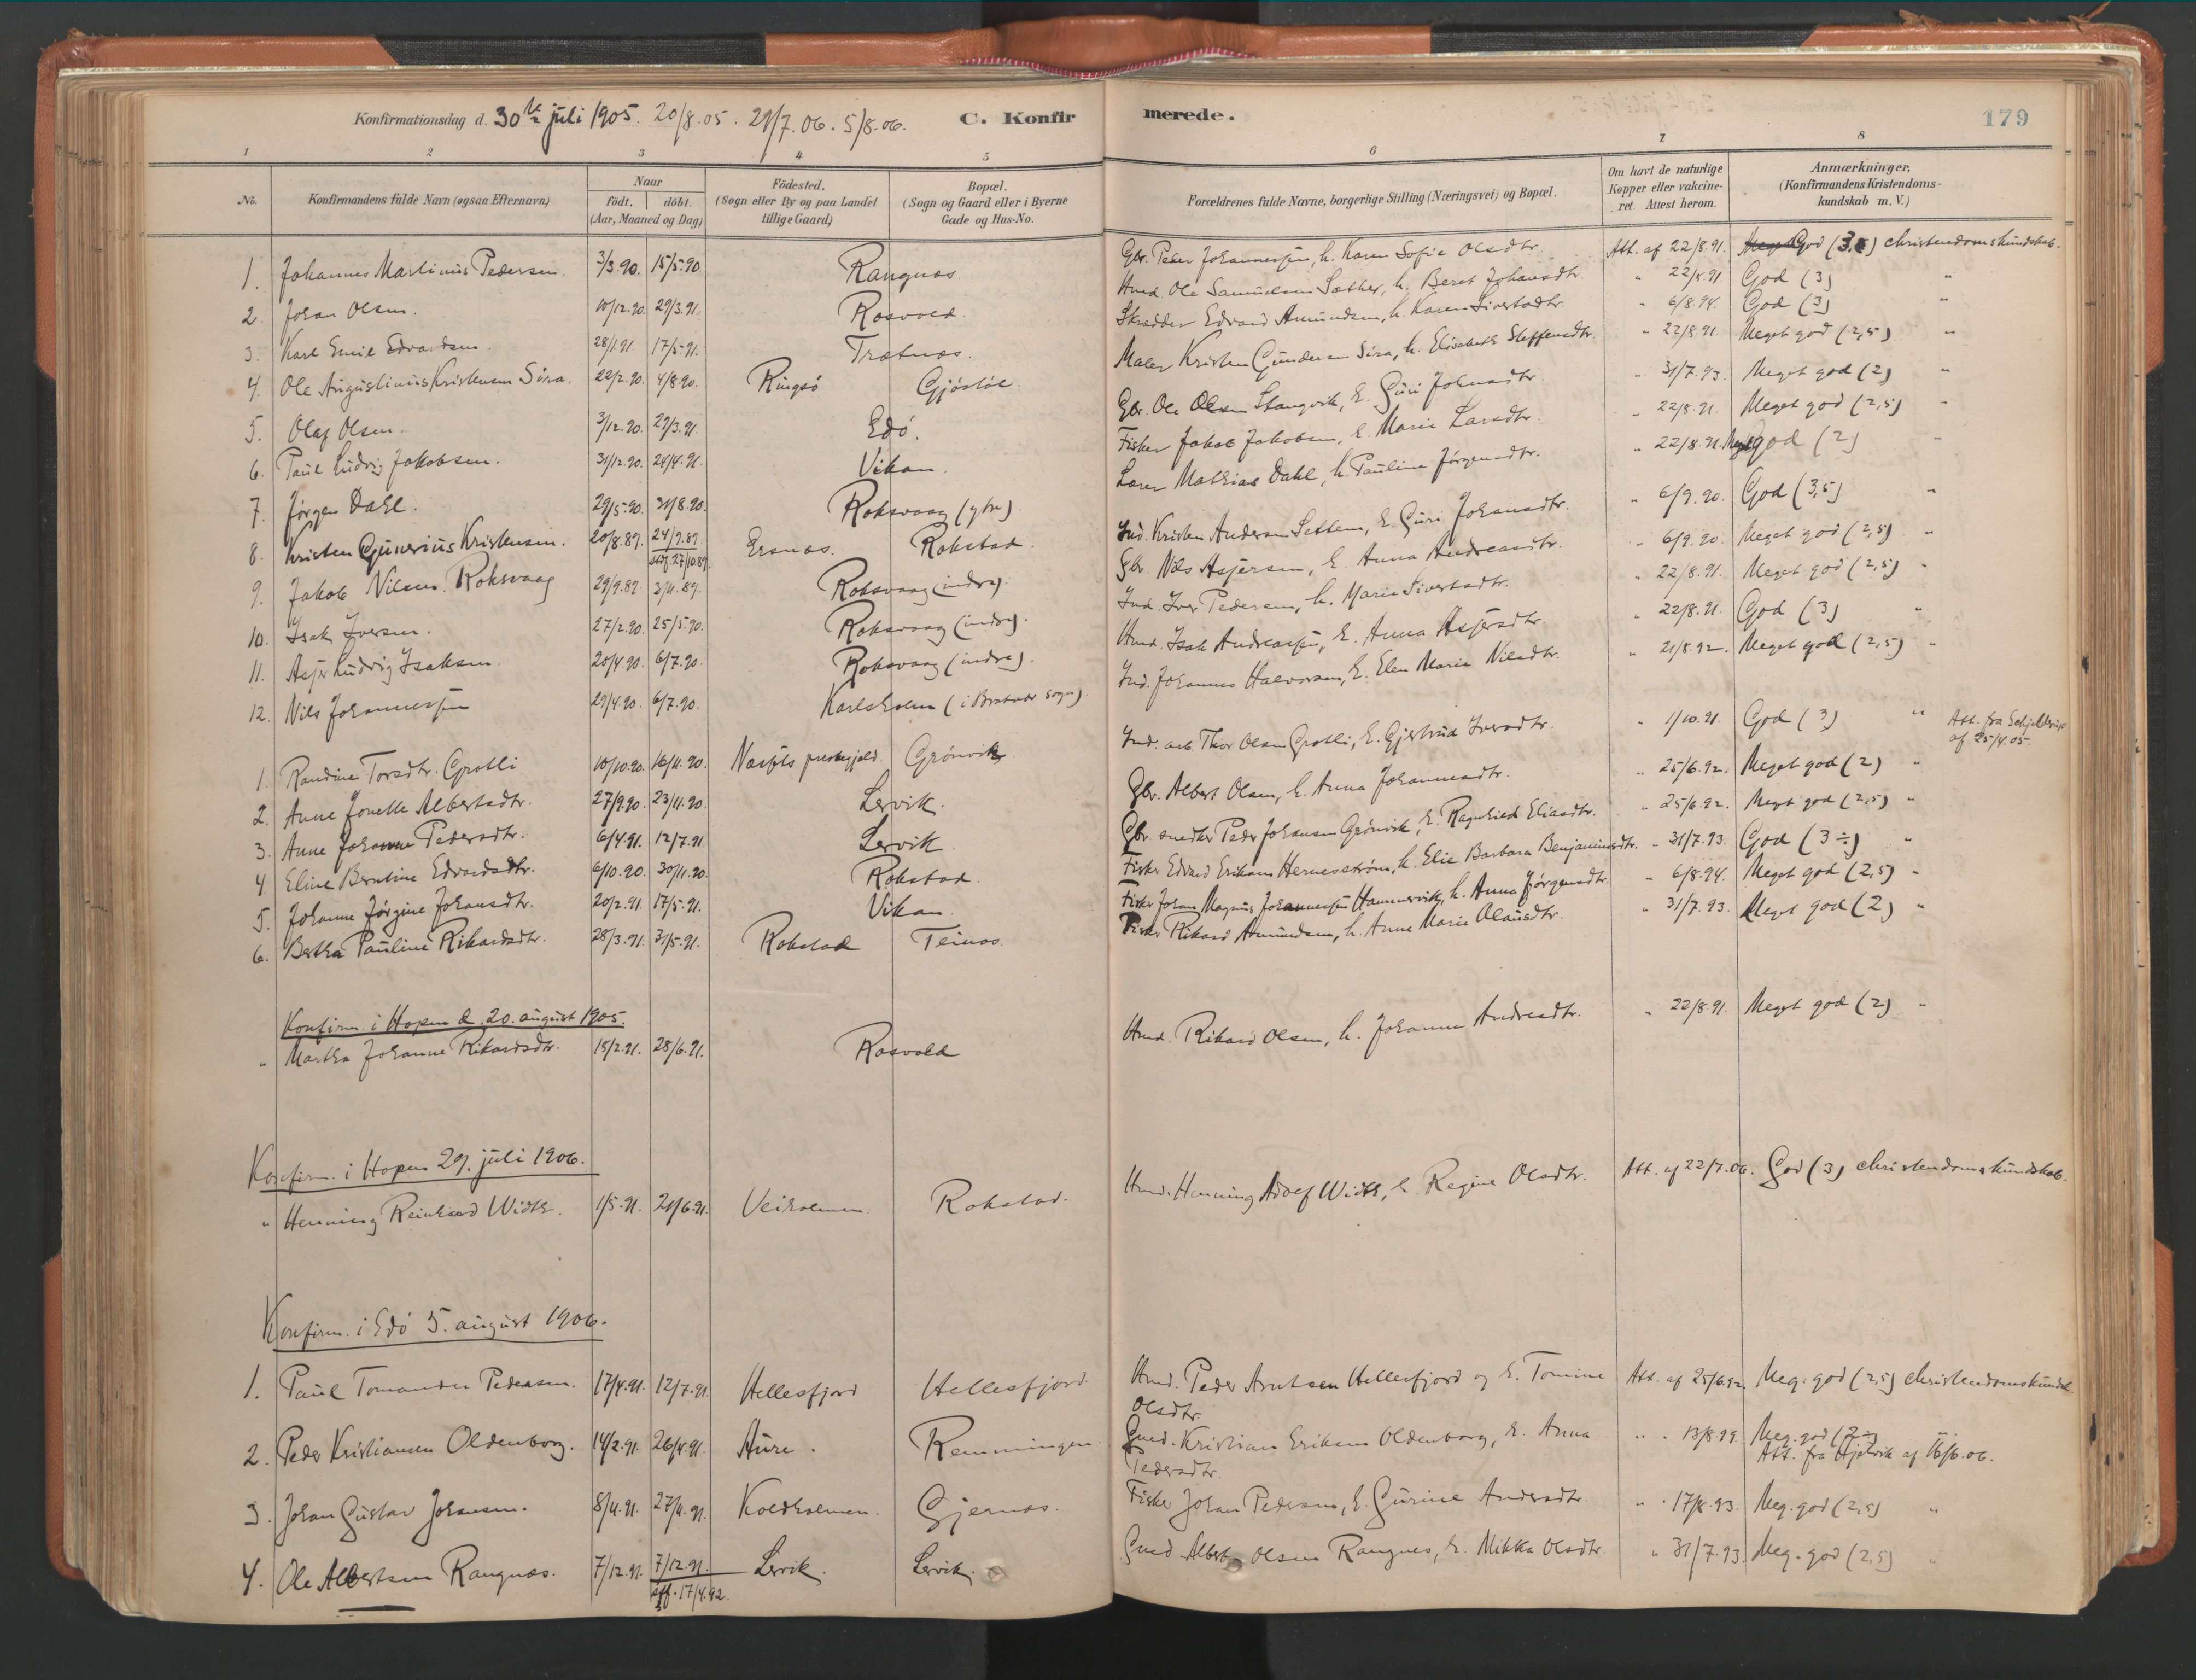 Konfirmationsdag d. 30te juli 1905. 20/8.05. 29/7.06. 5/8.06. C. Konfirmerede. 179
1 2 3 4 5 6 7 8
No. Konfirmandens fulde Navn (ogsaa Efternavn) Naar födt. döbt. (Aar, Maaned og Dag) Födested. (Sogn eller By og paa Landet tillige Gaard) Bopæl. (Sogn og Gaard eller i Byerne Gade og Hus-No. Forældrenes fulde Navne, borgerlige Stilling (Næringsvei) og Bopæl. Om havt de naturlige Kopper eller vakcineret. Attest herom. Anmærkninger. (Konfirmandens Kristendomskundskab m. V.)
1. Johannes Martinus Pedersen. 3/3.90. 15/5.90. Rangnæs Gbr. Peder Johannessen, h. Karen Sofie Olsdtr. Att. af 22/8.91. God christendomskundskab.
2. Johan Olsen. 10/12.90. 29/3.91. Rosvold Hmd. Ole Samuelsen Sæther, h. Beret Johansdtr. " 22/8.91 God (3) "
3. Karl Emil Edvardsen. 28/1.91. 17/5.91. Trætnæs. Skrædder Edvard Amundsen, h. Karen Sivertsdtr. " 6/8.94. God (3) "
4. Ole Augustinius Kristensen Sira. 22/2.90. 4/8.90. Ringsø Gjøstøl Maler Kristen Gundersen Sira, h. Elisabeth Steffensdtr. " 22/8.91. Meget god (2,5) "
5. Olaf Olsen. 3/12.90. 29/3.91. Edø. Gbr. Ole Olsen Stangvik, h. Guri Johnsdtr. " 31/7.93. Meget god (2) "
6. Paul Ludvig Jakobsen. 31/12.90. 24/4.91. Vikan. Fisker Jakob Jakobsen, h. Marie Larsdtr. " 22/8.91. Meget god (2,5) "
7. Jørgen Dahl. 29/5.90. 31/8.90. Roksvaag (ytre) Lærer Mathias Dahl, h. Pauline Jørgensdtr. " 22/8.91. Meget god (2) "
8. Kristen Gunerius Kristensen. 20/8.89. 24/9.89. stf. 27/10.89. Ersnæs. Rokstad. Ind. Kristen Andersen Settem, h. Guri Johansdtr. " 6/9.90. God (3,5) "
9. Jakob Nilsen Roksvaag 29/9.89. 3/11.89. Roksvaag (indre). Gbr. Nils Asjersen, h. Anna Andreasdtr. " 6/9.90. Meget god (2,5) "
10. Isak Iversen. 27/2.90. 25/5.90. Roksvaag (indre). Ind. Iver Pedersen, h. Marie Sivertsdtr. " 22/8.91. Meget god (2,5) "
11. Asjer Ludvig Isaksen. 20/4.90. 6/7.90. Roksvaag (indre). Hmd. Isak Andreassen, h. Anna Asjersdtr. " 22/8.91. God (3) "
12. Nils Johannessen 29/4.90. 6/7.90. Karlsholm (i Brattvær sogn) Ind. Johannes Halvorsen, h. Elen Marie Nilsdtr. " 21/8.92. Meget god (2,5) "
1. Randine Torsdtr. Grotli 10/10.90. 16/11.90. præstegjeld. Grønvik Ind. arb. Thor Olsen Grotli, h. Gjertrud Iversdtr. " 1/10.91. God (3) " Att. fra Schjelderup af 25/4.05.
2. Anne Jonette Albertsdtr. 27/9.90. 23/11.90. Lervik. Gbr. Albert Olsen, h. Anna Johannesdtr. " 25/6.92. Meget god (2) "
3. Anne Johanne Pedersdtr. 6/4.91. 12/7.91. Lervik. Gbr. snedker Peder Johansen Grønvik, h. Ragnhild Eliasdtr. " 25/6.92. Meget god (2,5) "
4 Eline Berntine Edvardsdtr. 6/10.90. 30/11.90. Rokstad. Fisker Edvard Eriksen Hernesstrøm, h. Elie Barbara Benjaminsdtr. " 31/7.93. God (3÷) "
5. Johanne Jørgine Johansdtr. 20/2.91. 17/5.91. Vikan. Fisker Johan Magnus Johannessen Hammervik, h. Anna Jørgensdtr. " 6/8.94. Meget god (2,5) "
6. Bertha Pauline Rikardsdtr. 28/3.91. 31/5.91. Rokstad Teinæs. Fisker Rikard Amundsen, h. Anne Marie Olausdtr. " 31/7.93. Meget god (2) "
Konfirm. i Hopen d. 20. august 1905.
" Martha Johanne Rikardsdtr. 15/2.91. 28/6.91. Rosvold Hmd. Rikard Olsen, h. Johanne Andreasdtr. " 22/8.91. Meget god (2) "
Konfirm. i Hopen 29. juli 1906.
" Henning Reinhard Width. 1/5.91. 21/6.91. Veiholmen Rokstad. Hmd. Henning Adolf Width, h. Regine Olsdtr. Att. af 22/7.06. God (3) christendomskundskab.
Konfirm. i Edø 5. august 1906.
1. Paul Tomander Pedersen. 17/4.91. 12/7.91. Hellesfjord Hellesfjord Hmd. Peder Arntsen Hellesfjord og h. Tomine Olsdtr. Att. af 25/6.92. Meg. god (2,5) christendomskundsk.
2. Peder Kristiansen Oldenborg. 14/2.91. 26/4.91. Aure. Remmingen. Gmd. Kristian Eriksen Oldenborg, h. Anna Pedersdtr. " " 13/8.99. Meg. god (2÷)
Att. fra Hjelvik af 16/6.06.
3. Johan Gustav Johansen. 8/4.91. 27/4.91. Koldholmen. Gjernæs. Fisker Johan Pedersen, h. Gurine Andersdtr. " " 17/8.93. Meg. god (2,5) "
4. Ole Albertsen Rangnæs. 7/12.91. 7/12.91. stf. 17/4.92. Lervik. Lervik. Gmd Albert Olsen Rangnes, h. Mikka Olsdtr. " 31/7.93. Meg. god (2,5) "